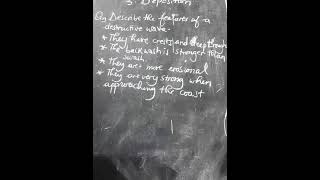 3. Deposition
Qn Describe the features of a
destructive wave.
* They have crests and deep troughs
* The backwash is stronger than
swash
* They are more erosional
* They are very strong when
approaching the coast